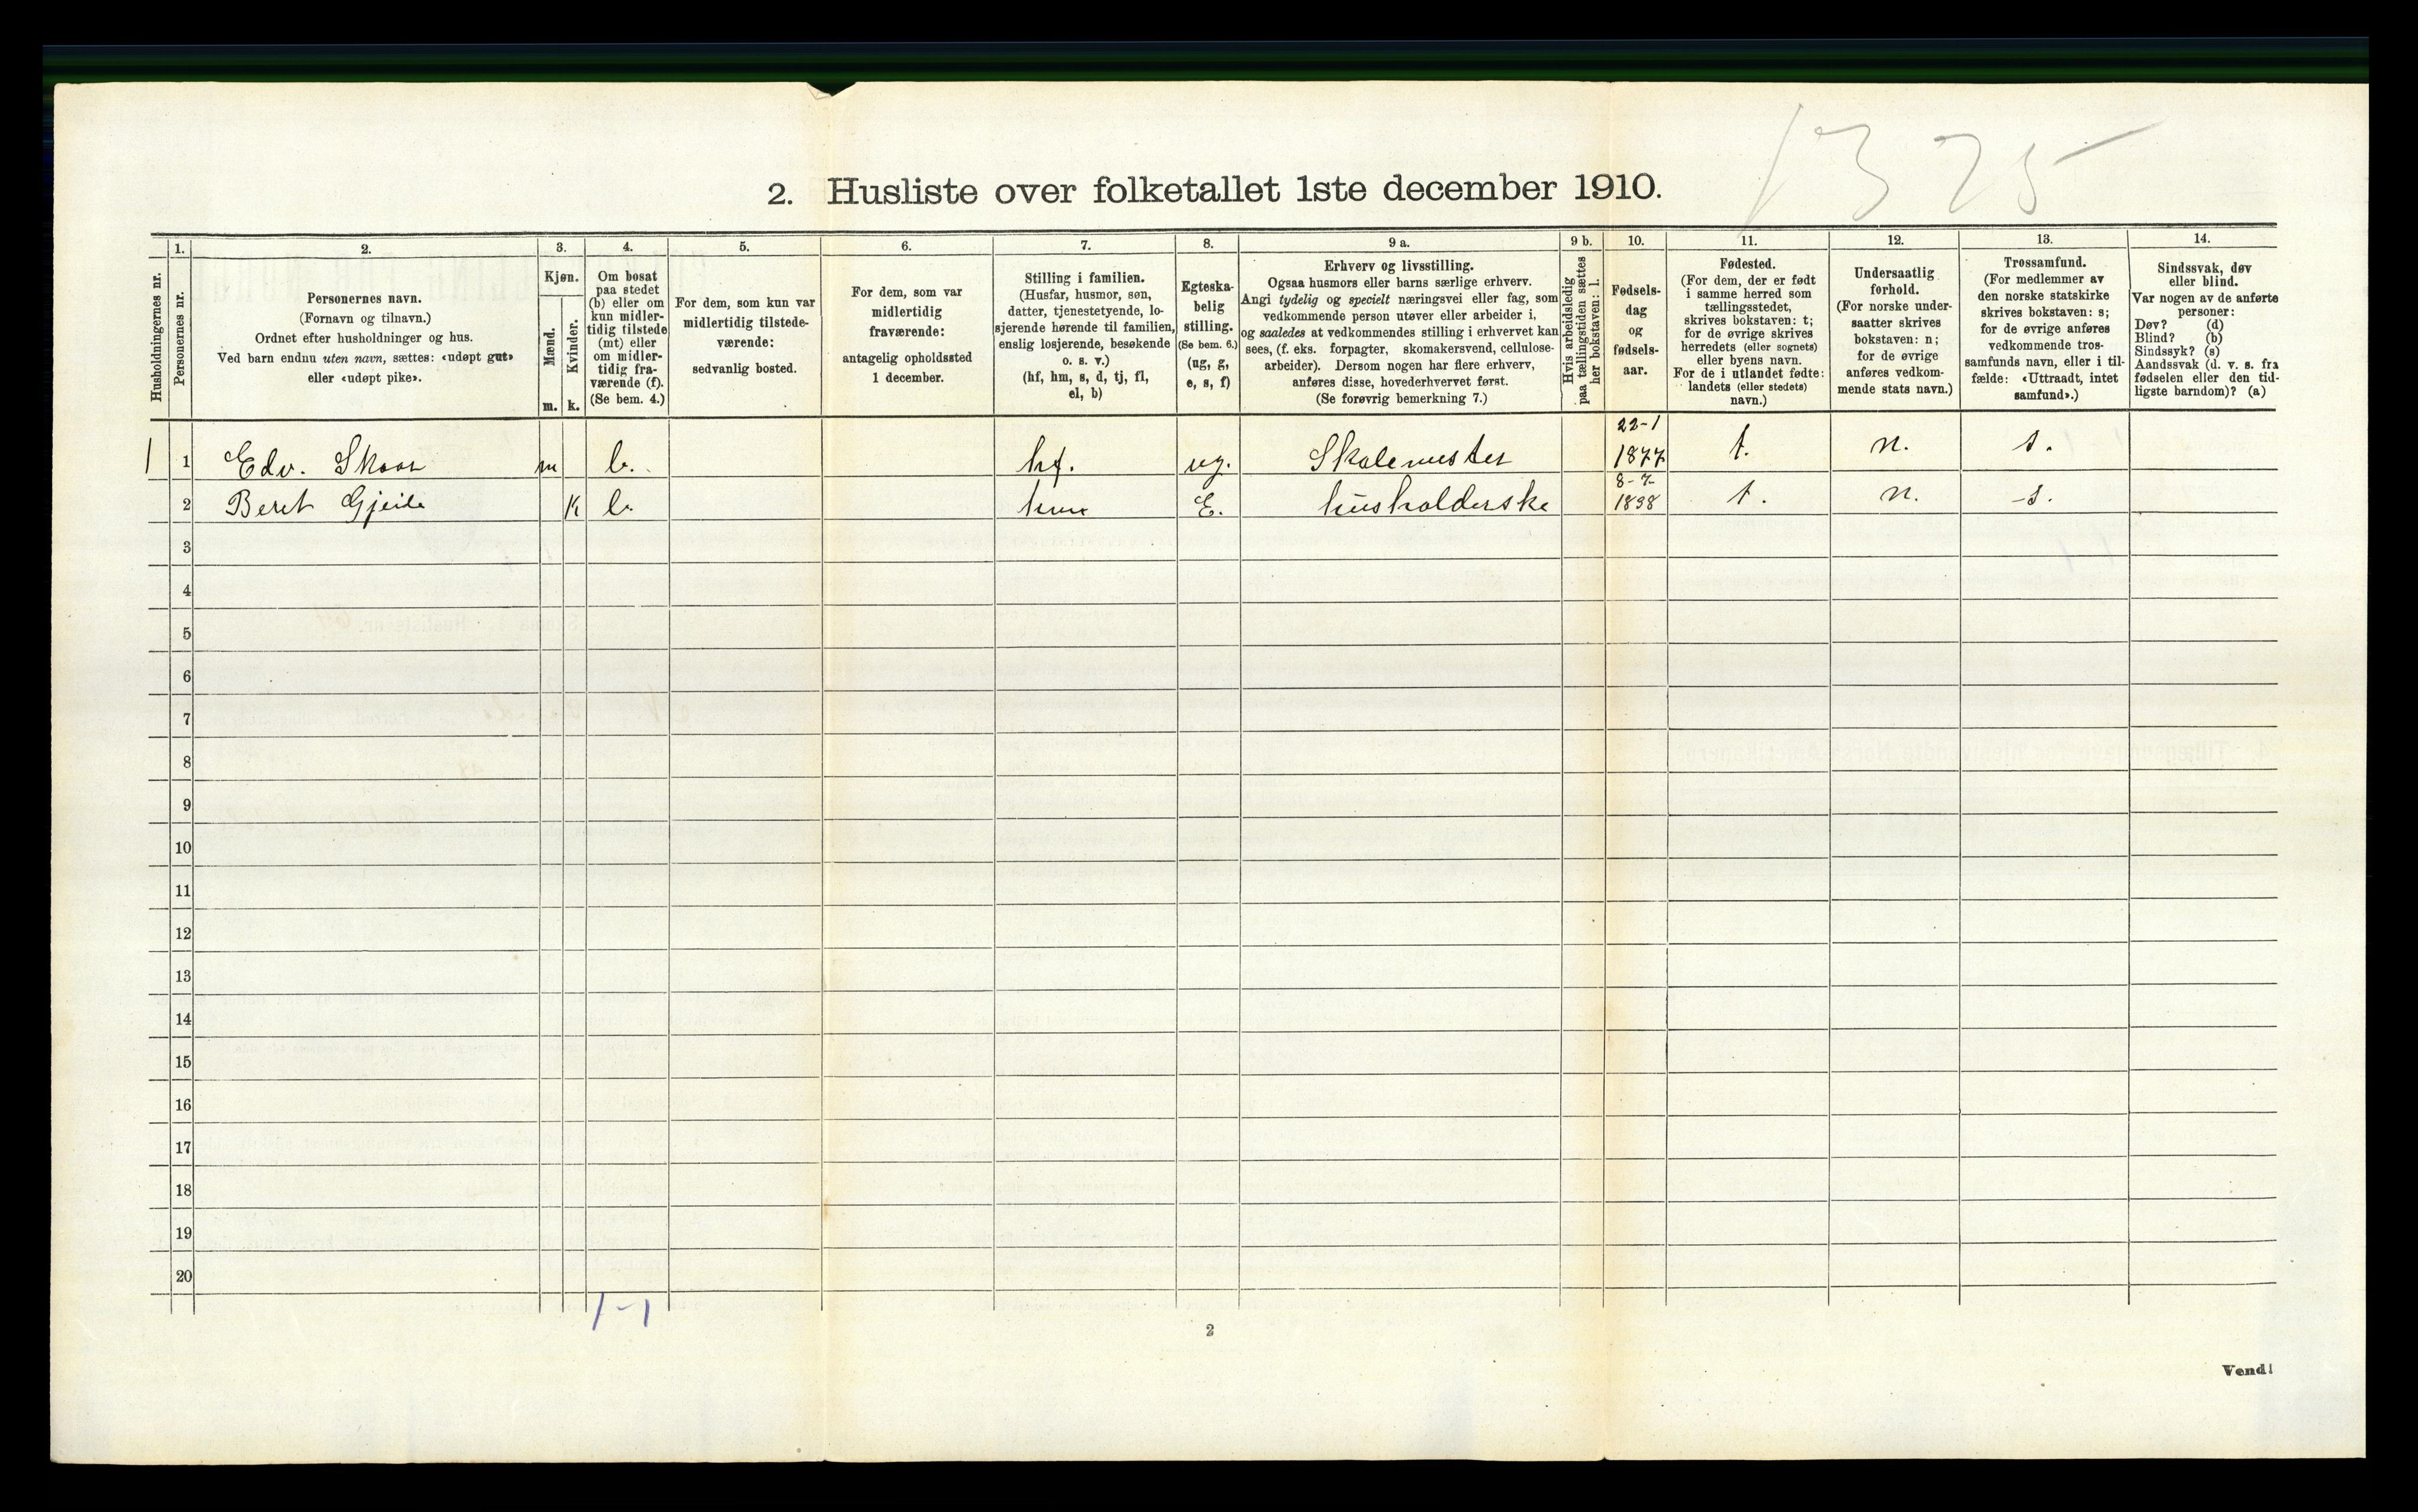 1325
2. Husliste over folketallet 1ste december 1910.
Husholdningernes nr.
1.
Personernes nr.
2.
Personernes navn.
(Fornavn og tilnavn.)
Ordnet efter husholdninger og hus.
Ved barn endnu uten navn, sættes: «udøpt gut»
eller «udøpt pike».
3.
Kjøn.
Mænd.
m.
Kvinder.
k.
4.
Om bosat
paa stedet
(b) eller om
kun midler-
tidig tilstede
(mt) eller
om midler-
tidig fra-
værende (f).
(Se bem. 4.)
5.
For dem, som kun var
midlertidig tilstede-
værende:
sedvanlig bosted.
6.
For dem, som var
midlertidig
fraværende:
antagelig opholdssted
1 december.
7.
Stilling i familien.
(Husfar, husmor, søn,
datter, tjenestetyende, lo-
sjerende hørende til familien,
enslig losjerende, besøkende
o. s. v.)
(hf, hm, s, d, tj, fl,
el, b)
8.
Egteska-
belig
stilling.
(Se bem. 6.)
(ug, g,
e, s, f)
9 a.
Erhverv og livsstilling.
Ogsaa husmors eller barns særlige erhverv.
Angi tydelig og specielt næringsvei eller fag, som
vedkommende person utøver eller arbeider i,
og saaledes at vedkommendes stilling i erhvervet kan
sees, (f. eks. forpagter, skomakersvend, cellulose-
arbeider). Dersom nogen har flere erhverv,
anføres disse, hovederhvervet først.
(Se forøvrig bemerkning 7.)
9 b.
Hvis arbeidsledig
paa tællingstiden sættes
her bokstaven: l.
10.
Fødsels-
dag
og
fødsels-
aar.
11.
Fødested.
(For dem, der er født
i samme herred som
tællingsstedet,
skrives bokstaven: t;
for de øvrige skrives
herredets (eller sognets)
eller byens navn.
For de i utlandet fødte:
landets (eller stedets)
navn.)
12.
Undersaatlig
forhold.
(For norske under-
saatter skrives
bokstaven: n;
for de øvrige
anføres vedkom-
mende stats navn.)
13.
Trossamfund.
(For medlemmer av
den norske statskirke
skrives bokstaven: s;
for de øvrige anføres
vedkommende tros-
samfunds navn, eller i til-
fælde: «Uttraadt, intet
samfund».)
14.
Sindssvak, døv
eller blind.
Var nogen av de anførte
personer:
Døv? (d)
Blind? (b)
Sindssyk? (s)
Aandssvak (d. v. s. fra
fødselen eller den tid-
ligste barndom)? (a)
1 1 Edv. Skaar m b. hf. ug. Skolemester 22-1 1877 t. n. s.
2 Beret Gjeide K b. E. husholderske 8-7- 1838 t. n. -s.
3
4
5
6
7
8
9
10
11
12
13
14
15
16
17
18
19
20
1-1
2
Vend!